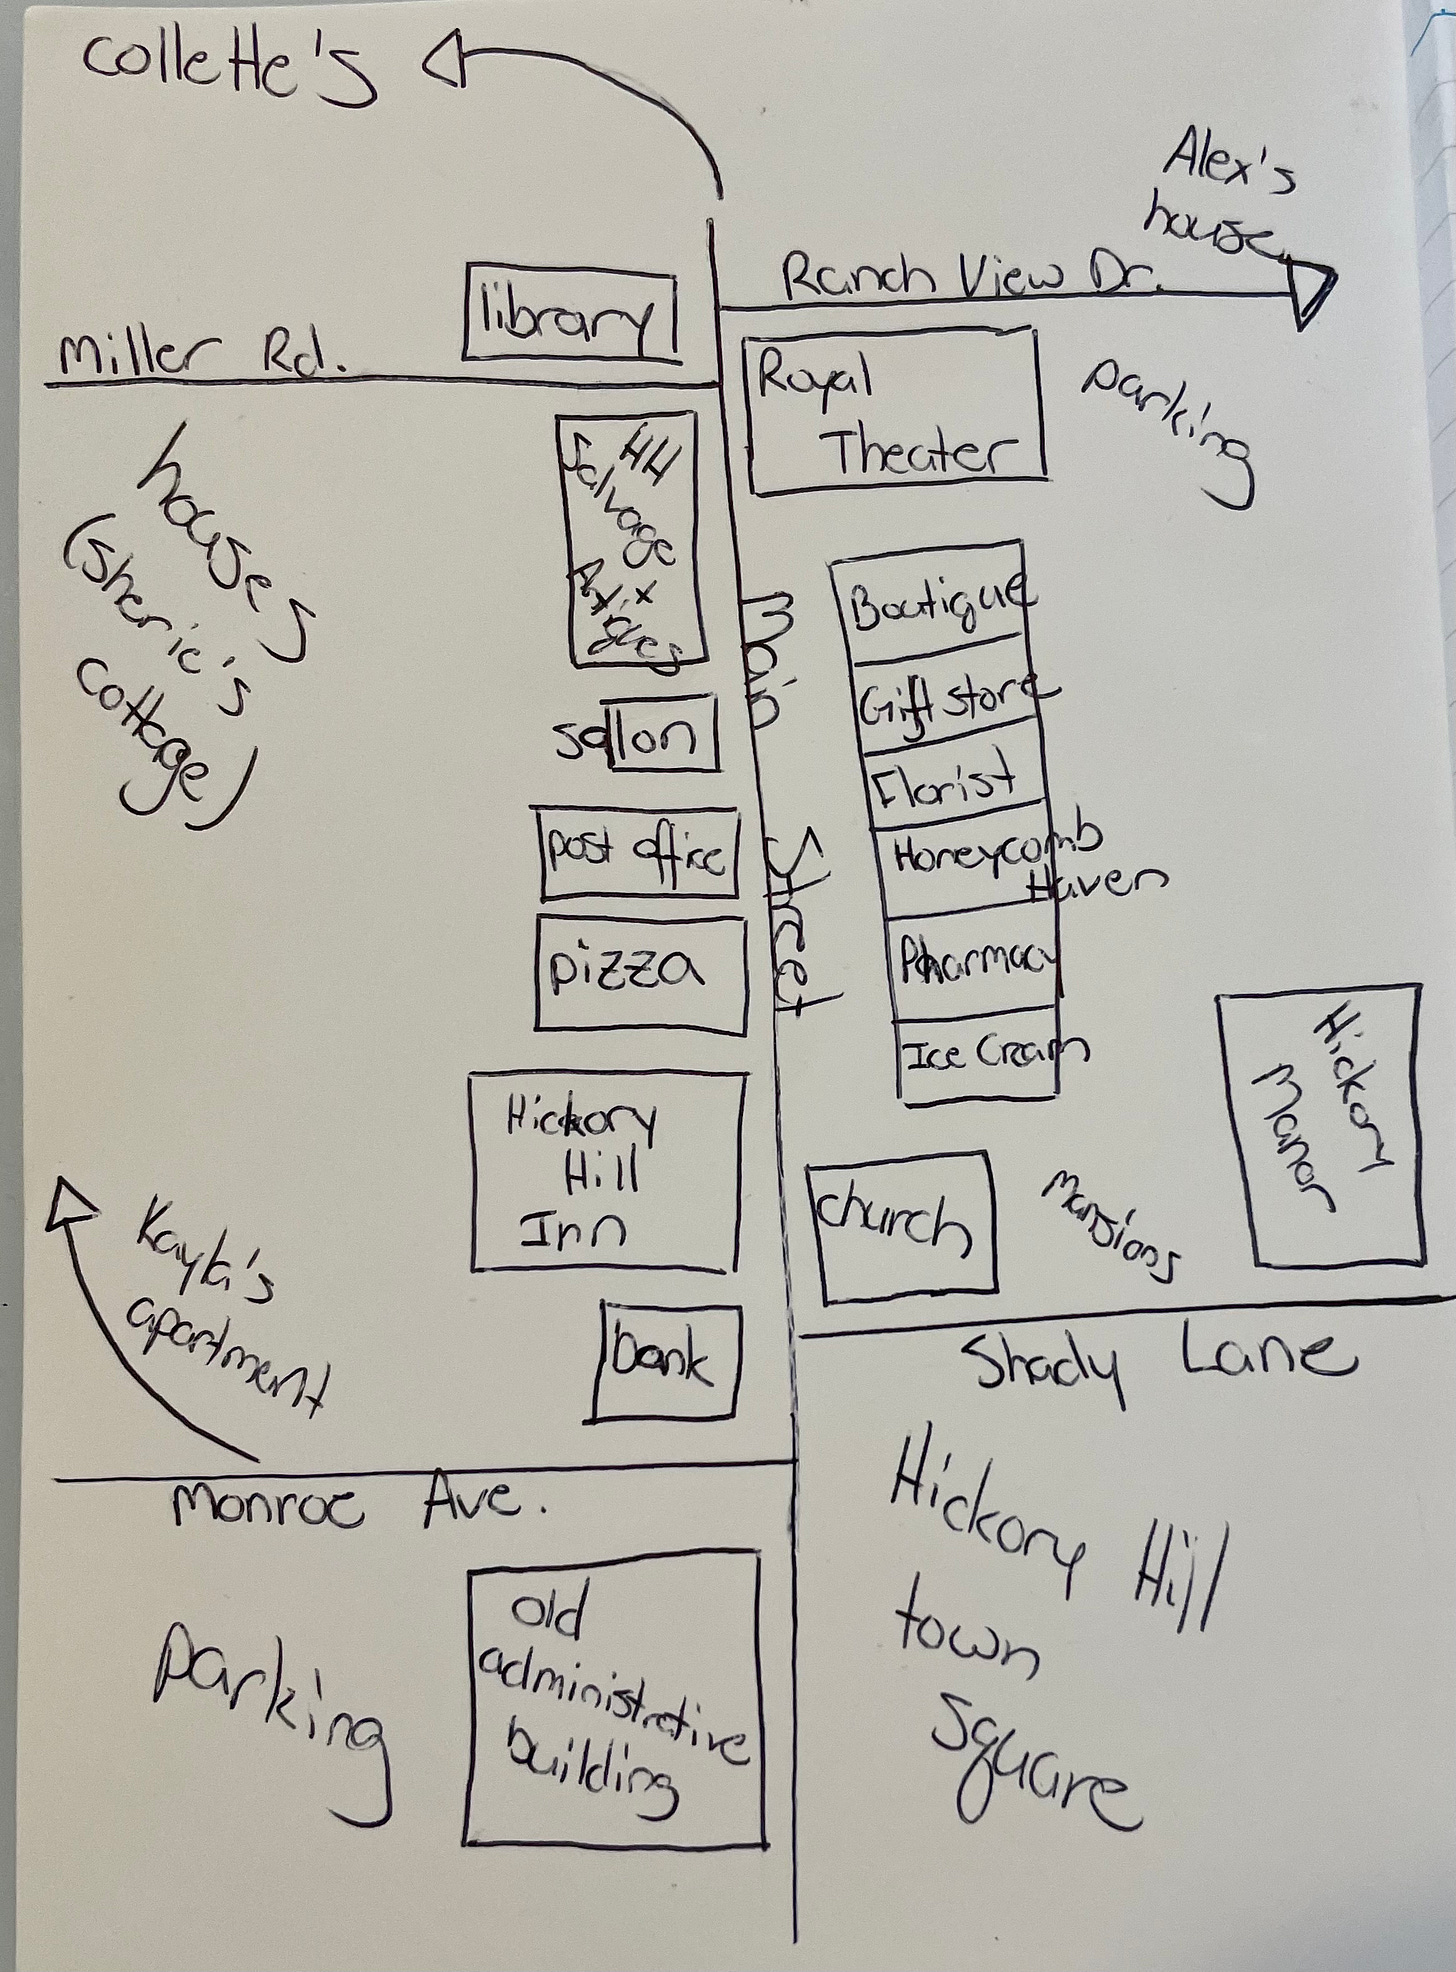 Collette's
Alex's
house
Ranch View Dr.
library
Miller Rd.
Royal
Theater
parking
HH
Salvage
Antiques
houses
(sherie's
cottage)
Boutique
Gift store
Florist
Honeycomb
Haven
Pharmacy
Ice Cream
Main Street
salon
post office
pizza
Hickory
Hill
Inn
Hickory
Manor
church
Mansions
Kayla's
apartment
bank
Shady Lane
Monroe Ave.
Hickory Hill
town
square
parking
old
administrative
building